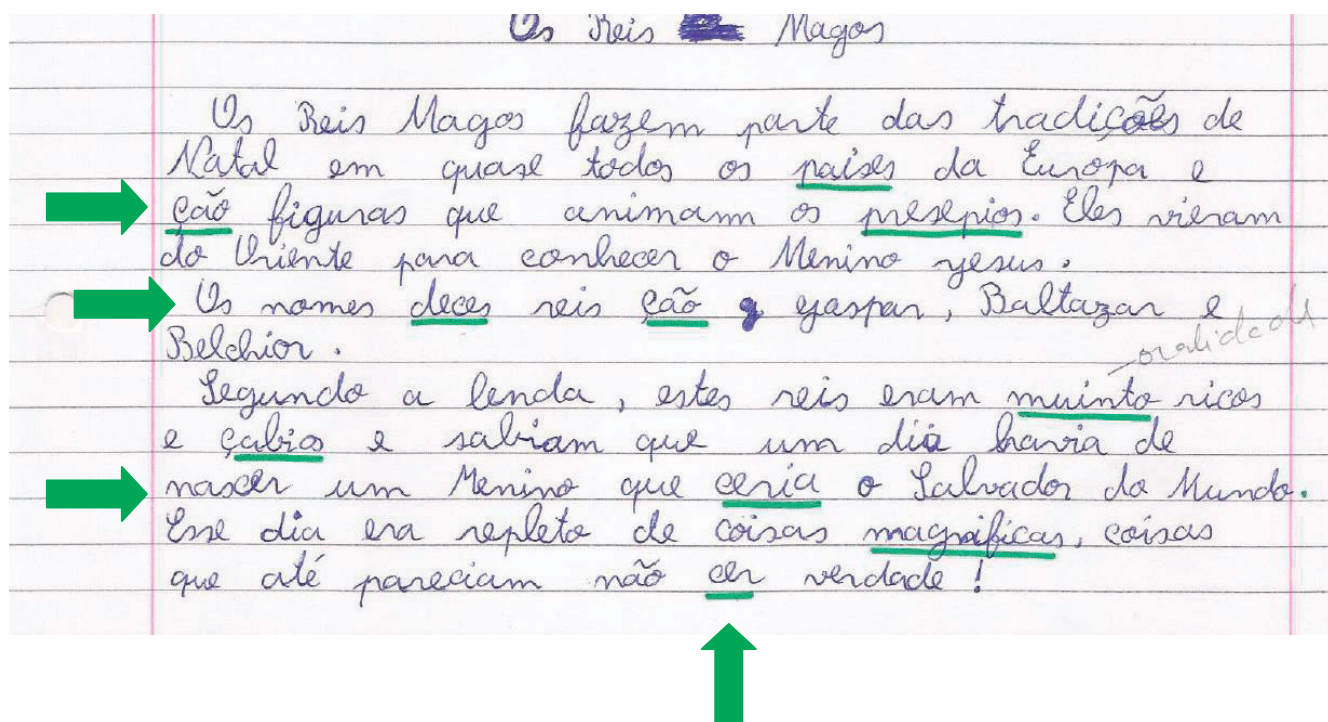 Os Reis Magos
Os Reis Magos fazem parte das tradições de
Natal em quase todos os paises da Europa e
ção figuras que animam os presepios. Eles vieram
do Oriente para conhecer o Menino yesus.
Os nomes deces reis ção gaspar, Baltazar e
Belchior.
oralidade
Segundo a lenda, estes reis eram muinto ricos
e çabios e sabiam que um dia havia de
nascer um Menino que ceria o Salvador do Mundo.
Esse dia era repleto de coisas magnificas, coisas
que até pareciam não cer verdade!